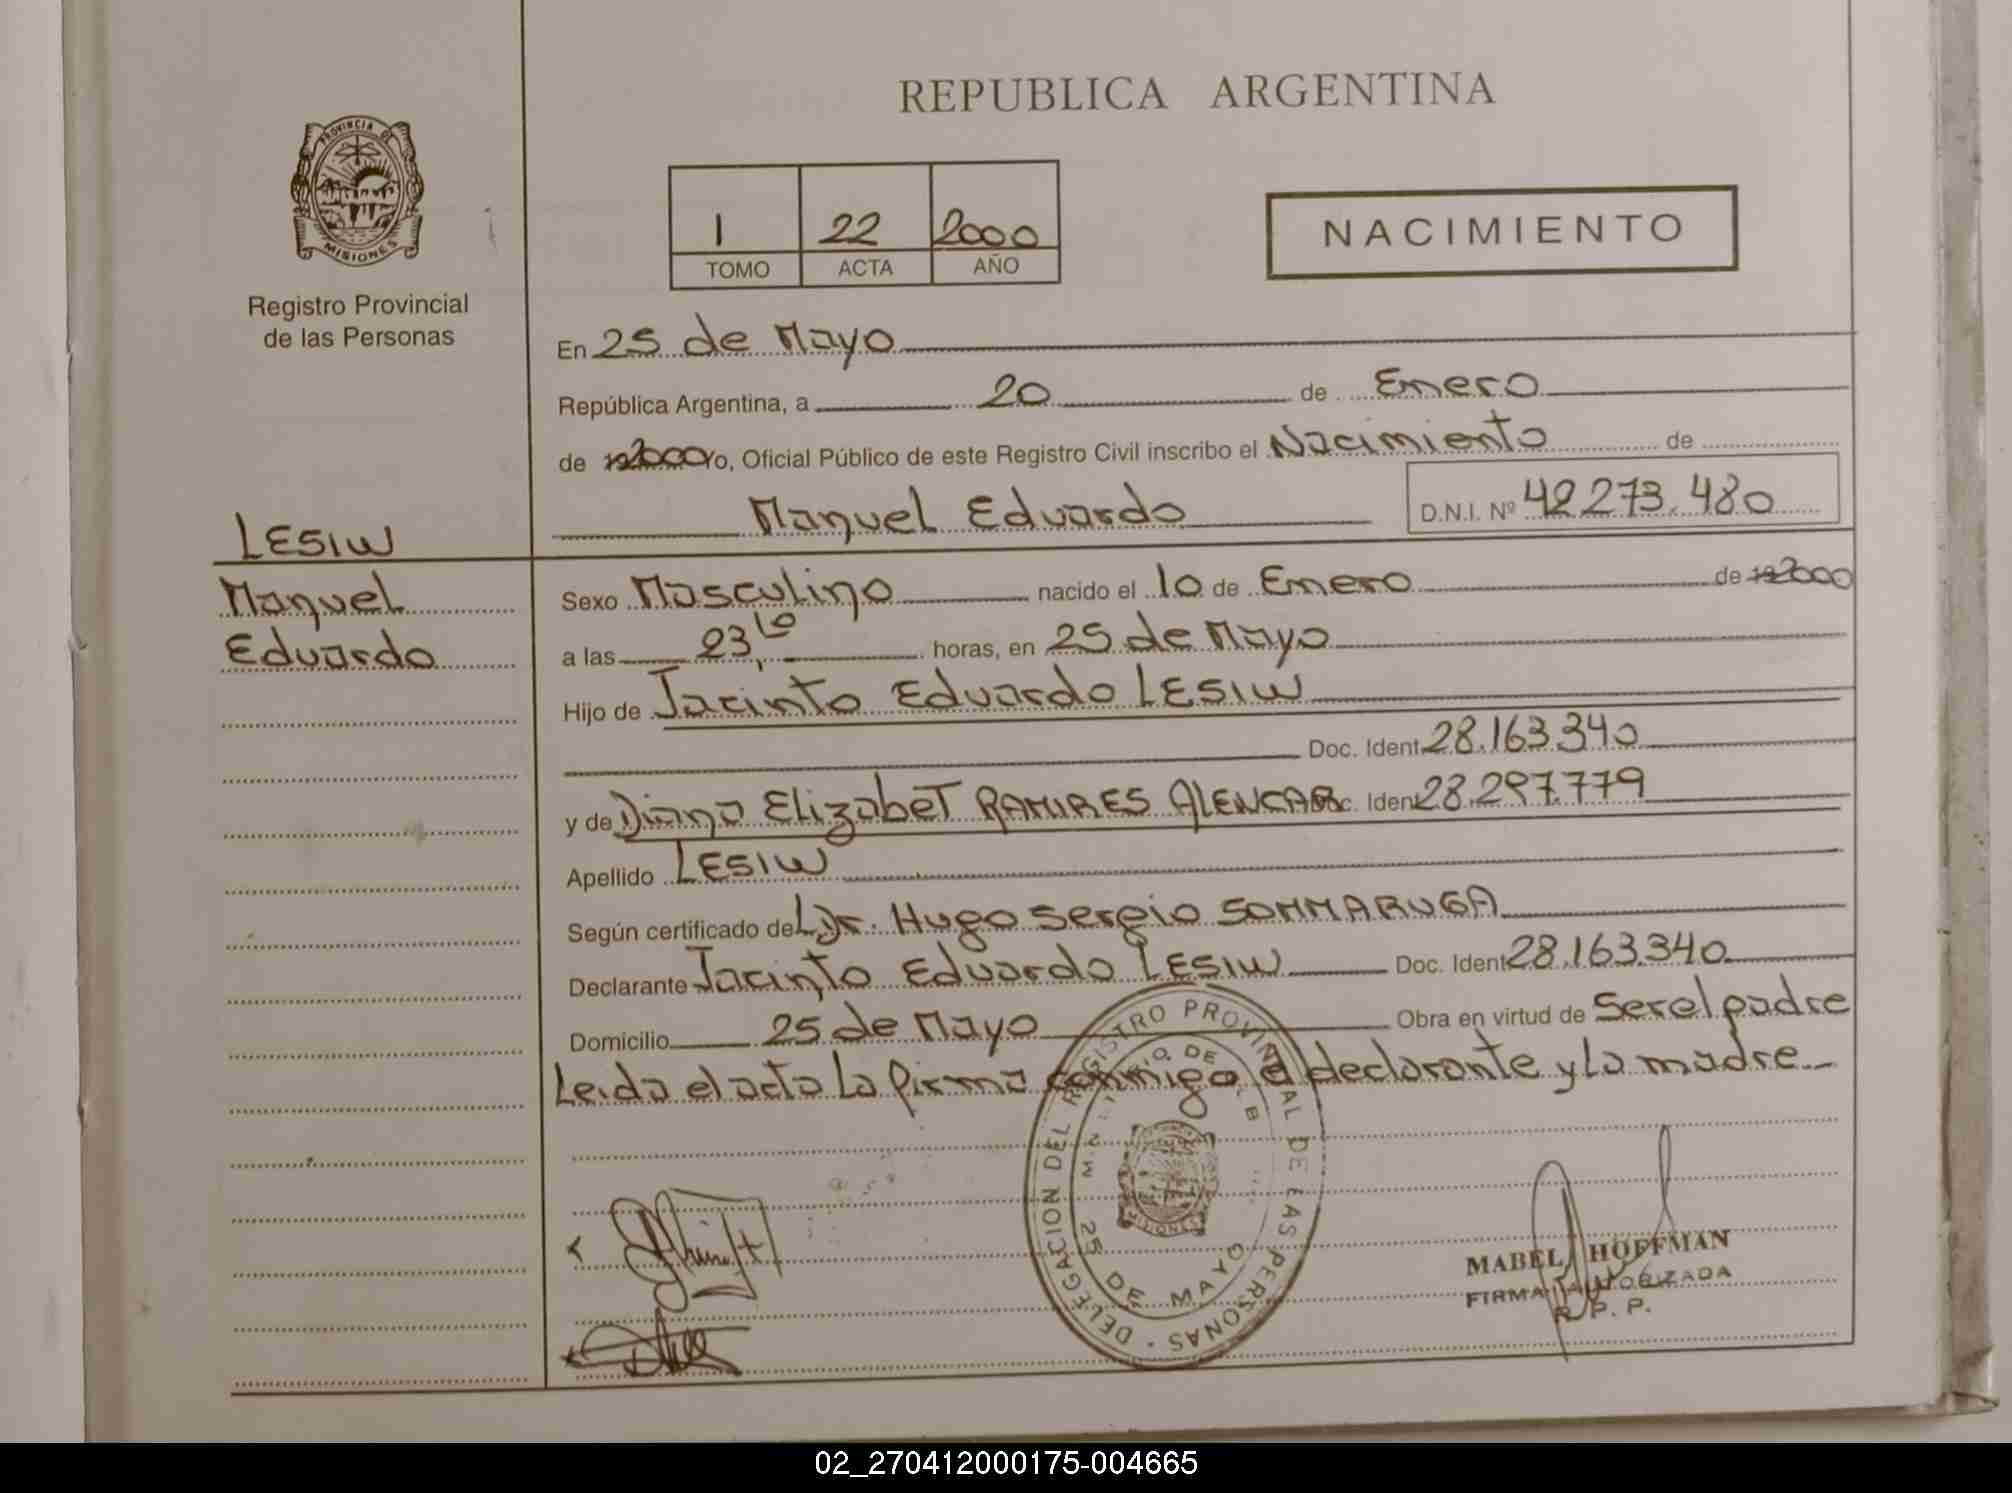 REPUBLICA ARGENTINA
PROVINCIA DE MISIONES
Registro Provincial
de las Personas
1 22 2000
TOMO ACTA AÑO
NACIMIENTO
En 25 de Mayo
República Argentina, a 20 de Enero
de 2000 Yo, Oficial Público de este Registro Civil inscribo el Nacimiento de
Manuel Eduardo D.N.I. Nº 42273.480
LESIW
Manuel
Eduardo
Sexo Masculino nacido el 10 de Enero de 2000
a las 23,10 horas, en 25 de Mayo
Hijo de Jacinto Eduardo LESIW
Doc. Ident. 28.163.340
y de Diana Elizabet RAMIRES ALENCAR Doc. Ident. 28.297.779
Apellido LESIW
Según certificado de Dr. Hugo Sergio SOMMARUGA
Declarante Jacinto Eduardo LESIW Doc. Ident. 28.163.340
Domicilio 25 de Mayo Obra en virtud de Ser el padre
Leida el acta la firma conmigo el declarante y la madre
DELEGACION DEL REGISTRO PROVINCIAL DE LAS PERSONAS
25 DE MAYO
MISIONES
MABEL HOFFMAN
FIRMA AUTORIZADA
R. P. P.
02_270412000175-004665